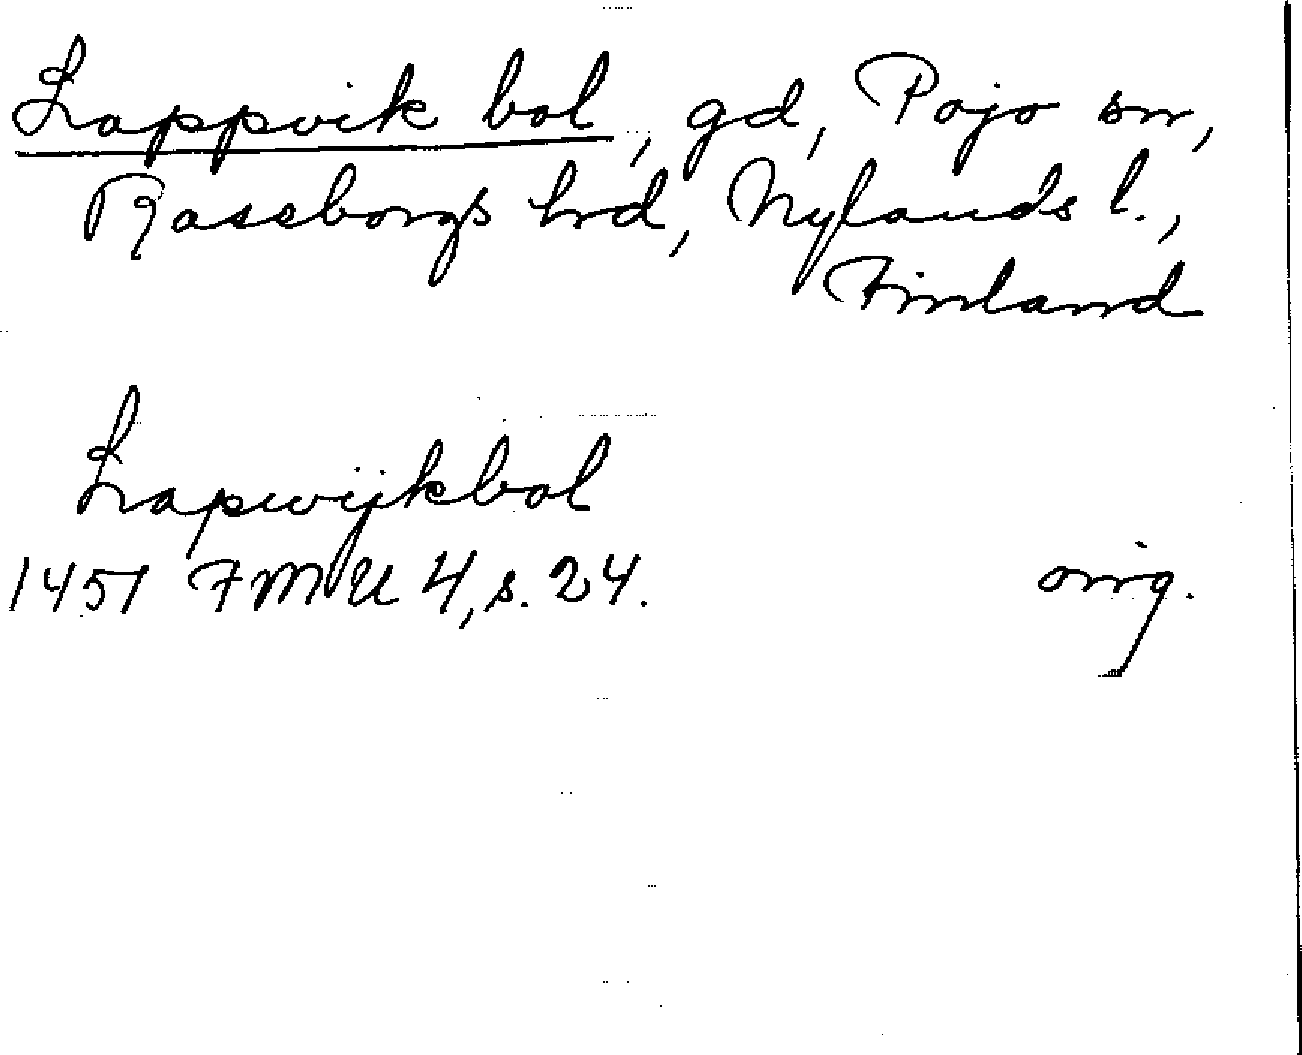 Lappvik bol, gd, Pojo sn,
Raseborgs hrd, Nylands l.,
Finland
Lapwijkbol
1451 FMU 4, s. 24. orig.